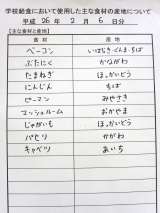 学校給食において使用した主な食材の産地について
平成 26年 2月 6日分
【主な食材と産地】
食材 産地
ベーコン いばらき・ぐんま・ちば
ぶたにく かながわ
たまねぎ ほっかいどう
にんじん ちば
ピーマン みやざき
マッシュルーム おかやま
じゃがいも ほっかいどう
パセリ かがわ
キャベツ あいち